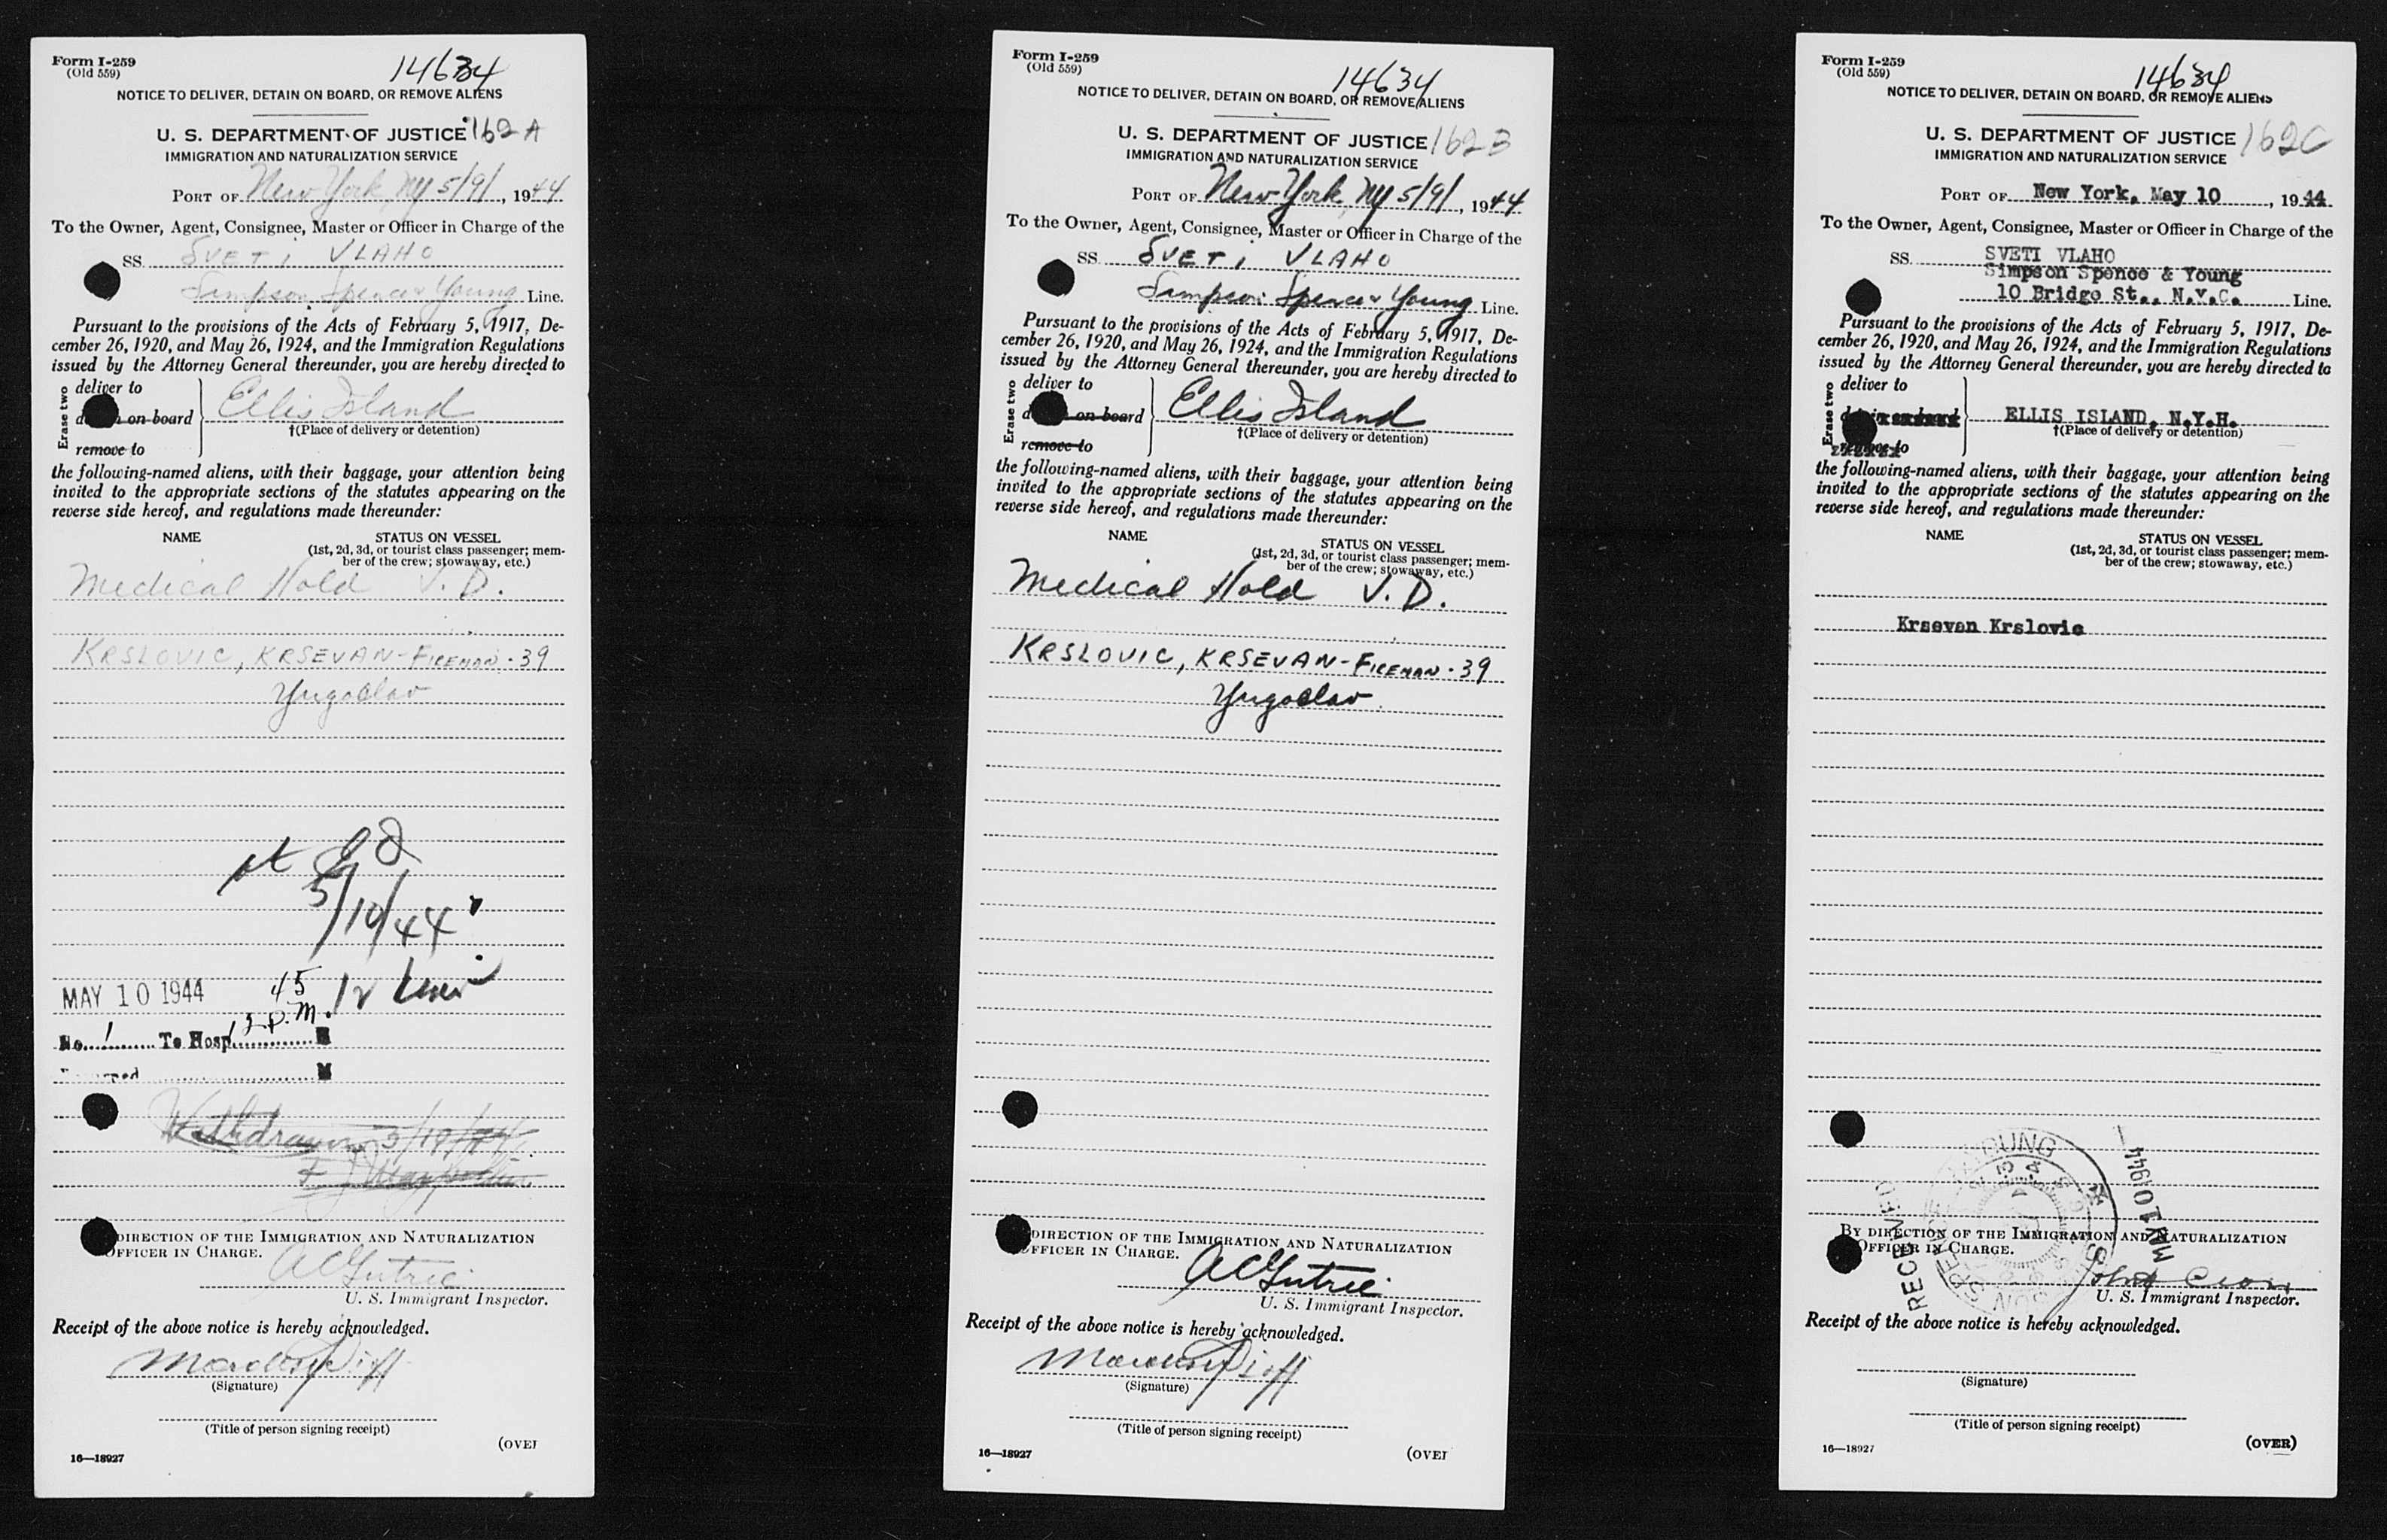 Form I-259
(Old 559)
14634
NOTICE TO DELIVER, DETAIN ON BOARD, OR REMOVE ALIENS
U. S. DEPARTMENT OF JUSTICE 162 A
IMMIGRATION AND NATURALIZATION SERVICE
PORT OF New York, NY 5/9/, 1944
To the Owner, Agent, Consignee, Master or Officer in Charge of the
SS. SVETI VLAHO
Simpson Spence & Young Line.
Pursuant to the provisions of the Acts of February 5, 1917, De-
cember 26, 1920, and May 26, 1924, and the Immigration Regulations
issued by the Attorney General thereunder, you are hereby directed to
Erase two
deliver to
on board
remove to
Ellis Island
†(Place of delivery or detention)
the following-named aliens, with their baggage, your attention being
invited to the appropriate sections of the statutes appearing on the
reverse side hereof, and regulations made thereunder:
NAME
STATUS ON VESSEL
(1st, 2d, 3d, or tourist class passenger; mem-
ber of the crew; stowaway, etc.)
Medical Hold V. D.
KRSLOVIC, KRSEVAN - FIREMAN - 39
Yugoslav
5/10/44
MAY 10 1944
45
12 P.M.
No. 1 To Hosp.
M
Withdrawn
DIRECTION OF THE IMMIGRATION AND NATURALIZATION
OFFICER IN CHARGE.
A C Gutrie
U. S. Immigrant Inspector.
Receipt of the above notice is hereby acknowledged.
(Signature)
(Title of person signing receipt)
(OVER
16—18927
Form I-259
(Old 559)
14634
NOTICE TO DELIVER, DETAIN ON BOARD, OR REMOVE ALIENS
U. S. DEPARTMENT OF JUSTICE 162 B
IMMIGRATION AND NATURALIZATION SERVICE
PORT OF New York, NY 5/9/, 1944
To the Owner, Agent, Consignee, Master or Officer in Charge of the
SS. SVETI VLAHO
Simpson Spence & Young Line.
Pursuant to the provisions of the Acts of February 5, 1917, De-
cember 26, 1920, and May 26, 1924, and the Immigration Regulations
issued by the Attorney General thereunder, you are hereby directed to
Erase two
deliver to
on board
remove to
Ellis Island
†(Place of delivery or detention)
the following-named aliens, with their baggage, your attention being
invited to the appropriate sections of the statutes appearing on the
reverse side hereof, and regulations made thereunder:
NAME
STATUS ON VESSEL
(1st, 2d, 3d, or tourist class passenger; mem-
ber of the crew; stowaway, etc.)
Medical Hold V. D.
KRSLOVIC, KRSEVAN - FIREMAN - 39
Yugoslav
DIRECTION OF THE IMMIGRATION AND NATURALIZATION
OFFICER IN CHARGE.
A C Gutrie
U. S. Immigrant Inspector.
Receipt of the above notice is hereby acknowledged.
(Signature)
(Title of person signing receipt)
(OVER
16—18927
Form I-259
(Old 559)
14634
NOTICE TO DELIVER, DETAIN ON BOARD, OR REMOVE ALIENS
U. S. DEPARTMENT OF JUSTICE 162 C
IMMIGRATION AND NATURALIZATION SERVICE
PORT OF New York, May 10, 1944
To the Owner, Agent, Consignee, Master or Officer in Charge of the
SS. SVETI VLAHO
Simpson Spence & Young
10 Bridge St., N.Y.C. Line.
Pursuant to the provisions of the Acts of February 5, 1917, De-
cember 26, 1920, and May 26, 1924, and the Immigration Regulations
issued by the Attorney General thereunder, you are hereby directed to
Erase two
deliver to
ELLIS ISLAND, N.Y.H.
†(Place of delivery or detention)
the following-named aliens, with their baggage, your attention being
invited to the appropriate sections of the statutes appearing on the
reverse side hereof, and regulations made thereunder:
NAME
STATUS ON VESSEL
(1st, 2d, 3d, or tourist class passenger; mem-
ber of the crew; stowaway, etc.)
Krsevan Krslovic
RECEIVED
MAY 10 1944
BY DIRECTION OF THE IMMIGRATION AND NATURALIZATION
OFFICER IN CHARGE.
U. S. Immigrant Inspector.
Receipt of the above notice is hereby acknowledged.
(Signature)
(Title of person signing receipt)
(OVER)
16—18927